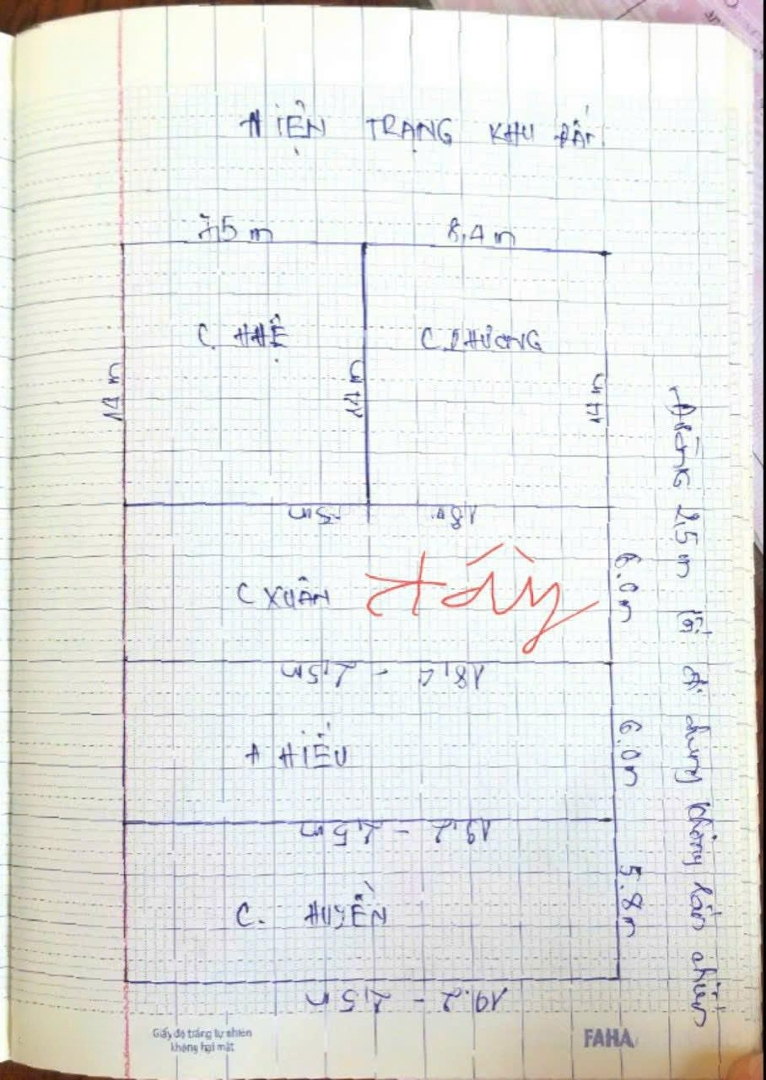 HIỆN TRẠNG KHU ĐẤT
7,5 m
8,4 m
C. HUỆ
C. PHƯƠNG
14 m
14 m
14 m
C XUÂN
6.0 m
18,4 - 2,5 m
A HIẾU
6.0 m
19,2 - 2,5 m
C. HUYỀN
5.8 m
19.2 - 2,5 m
Đường 2,5 m lối đi chung không lấn chiếm
Giấy độ trắng tự nhiên
không hại mắt
FAHA